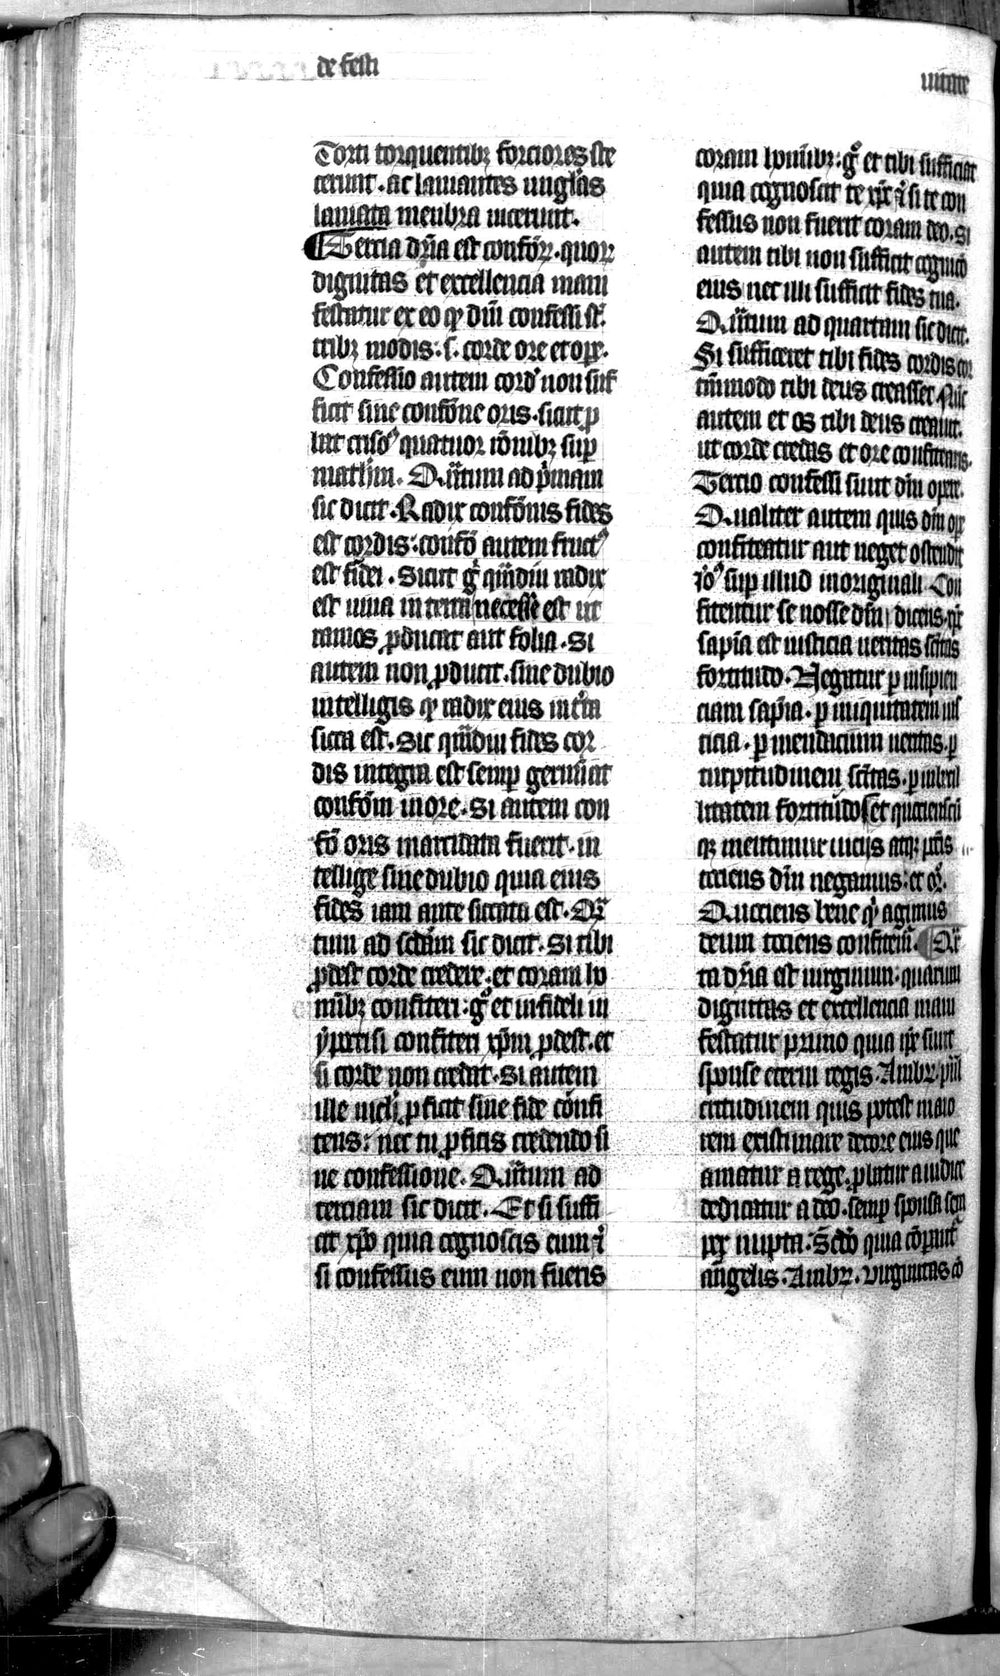 de festi
uitate
Torti torquentibꝫ forciores ste
terunt · ac laniantes ungl'as
laniata menbra uicerunt.
Tercia dr̄ia est confōꝝ · quoꝝ
dignitas et excellencia mani
festatur ex eo qꝫ dm̄ confessi st̄
tribꝫ modis : s. corde ore et oꝑe ·
Confessio autem cord' non suf
ficit sine confōne oris · sicut ꝓ
bat crisoꝰ quatuor rōnibꝫ suꝑ
math'm. Qͣntum ad p̄mam
sic dicit · Radix confōnis fides
est cordis : confō autem fructꝰ
est fidei · Sicut gͦ qͣmdiu radix
est uiua in terra necesse est ut
ramos ꝓducat aut folia · Si
autem non ꝓducit · sine dubio
intelligis qꝫ radix eius in t'ra
sicca est · Sic qͣmdiu fides cor
dis integra est semꝑ germīat
confōm in ore · Si autem con
fō oris marcidata fuerit · in
tellige sine dubio quia eius
fides iam ante siccata est · Qͣn
tum ad scd̄am sic dicit · Si tibi
ꝓdest corde credere · et coram ho
mībꝫ confiteri : gͦ et infideli in
ypocrisi confiteri xp̄m ꝓdest · et
si corde non credat · Si autem
ille nichil ꝓficit sine fide confi
tens : nec tu ꝓficis credendo si
ne confessione · Qͣntum ad
terciam sic dicit · Et si suffi
cit xp̄o quia cognoscis eum ⁊
si confessus eum non fueris
coram hominibꝫ : gͦ et tibi sufficiat
quia cognoscit te xp̄c ⁊ si te con
fessus non fuerit coram deo · Si
autem tibi non sufficit cognicō
eius nec illi sufficit fides tua ·
Qͣntum ad quartam sic dicit ·
Si sufficeret tibi fides cordis cor
tm̄modo tibi deus creasset Nūc
autem et os tibi deus creauit.
ut corde credas et ore confitearis ·
Tercio confessi sunt dm̄ opere ·
Qualiter autem quis dm̄ oꝑe
confiteatur aut neget ostendit
ieroꝰ suꝑ illud in originali Con
fitentur se nosse dm̄ dicens · xp̄c
sapīa est iusticia ueritas scītas
fortitudo · Negatur ꝑ insipien
ciam sapīa · ꝑ iniquitatem ius
ticia · ꝑ mendacium ueritas · ꝑ
turpitudinem scītas · ꝑ inbecil
litatem fortitudo et quociēscū
qꝫ uincimur uicijs atqꝫ pctīs
tociens dm̄ negamus : et eͦ.
Quociens bene qͥd agimus
deum tociens confitemͬ. Qͣr
ta dr̄ia est uirginum · quarum
dignitas et excellencia mani
festatur primo quia ipse sunt
sponse eterni regis · Ambꝝ · pul
critudinem quis potest maio
rem existimare decore eius que
amatur a rege · ꝓbatur a iudice
dedicatur a deo · semꝑ sponsa sem
ꝑ nupta · Scd̄o quia cōparantͬ
angelis · Ambꝝ · Virginitas cō